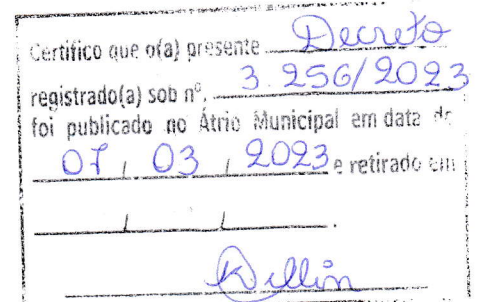 Certifico que o(a) presente Decreto
registrado(a) sob nº. 3.256/2023
foi publicado no Átrio Municipal em data de
07 / 03 / 2023 e retirado em
/ / .